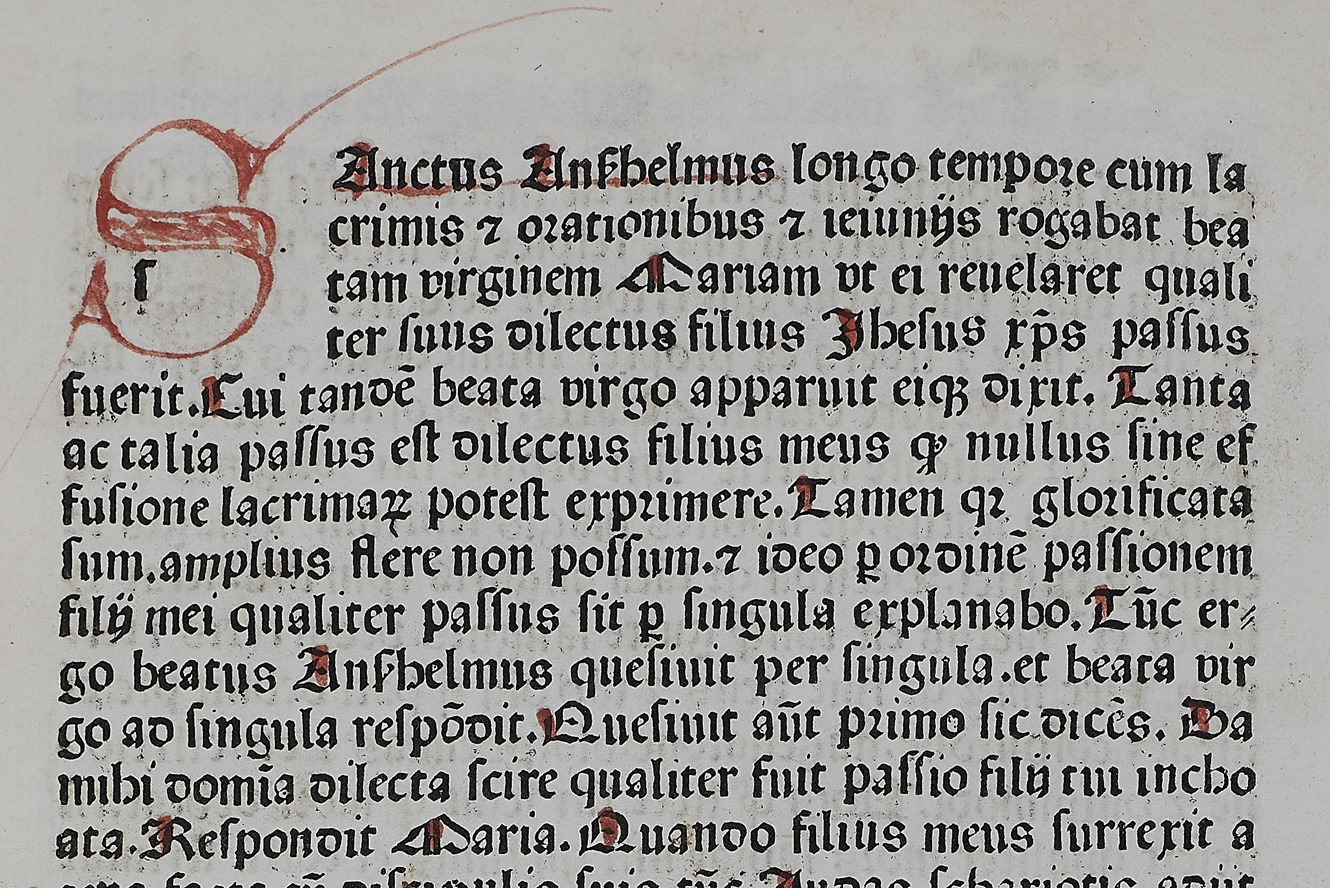 SAnctus Anßhelmus longo tempore cum la
crimis ⁊ orationibus ⁊ ieiunijs rogabat bea
tam virginem Mariam vt ei reuelaret quali
ter suus dilectus filius Jhesus xp̄s passus
fuerit. Cui tandē beata virgo apparuit eiqꝫ dixit. Tanta
ac talia passus est dilectus filius meus ꝙ nullus sine ef
fusione lacrimaꝝ potest exprimere. Tamen qꝛ glorificata
sum. amplius flere non possum. ⁊ ideo ꝑ ordinē passionem
filij mei qualiter passus sit ꝑ singula explanabo. Tūc er⸗
go beatus Anßhelmus quesiuit per singula. et beata vir
go ad singula respōdit. Quesiuit aūt primo sic dicēs. Da
mihi domīa dilecta scire qualiter fuit passio filij tui incho
ata. Respondit Maria. Quando filius meus surrexit a